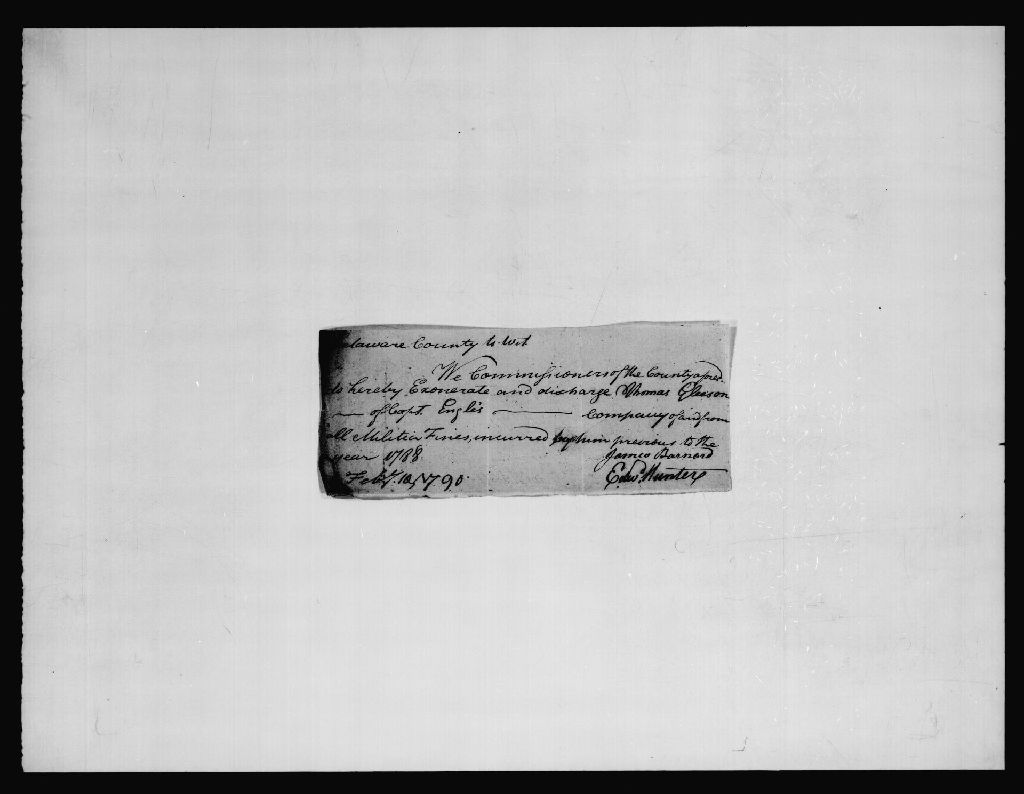 Delaware County to wit
We Commissioners of the County afores'd
do hereby Exonerate and discharge Thomas Gleason
of Capt. Engles Company of and from
all Militia Fines, incurred by him previous to the
year 1788
James Barnard
Feby. 10, 1790 Edwd. Hunter